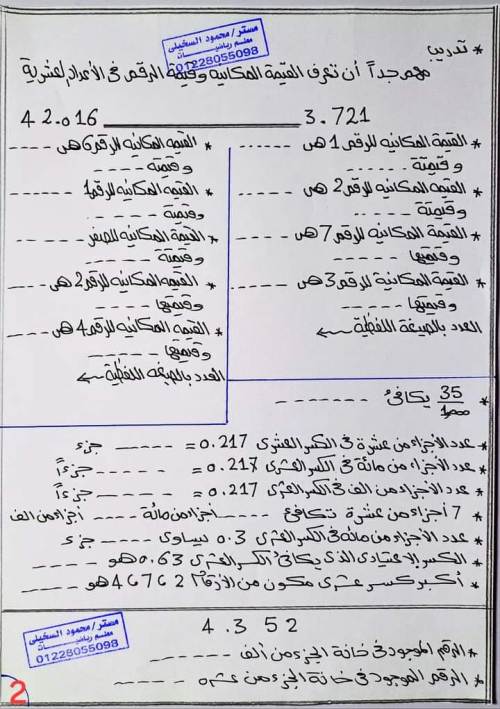 مستر/محمود السخيلى
معلم رياضيات
01228055098
* تدريب
مهم جداً أن تعرف القيمة المكانية وقيمة الرقم فى الأعداد العشرية
3.721
* القيمة المكانية للرقم 1 هى ......
وقيمتة ......
* القيمة المكانية للرقم 2 هى .....
وقيمتة ......
* القيمة المكانية للرقم 7 هى .....
وقيمتها -----
* القيمة المكانية للرقم 3 هى ----
وقيمتها -----
العدد بالصيغة اللفظية ←
42.016
* القيمة المكانية للرقم 6 هى ----
وقيمتة -----
* القيمة المكانية للرقم 1 ------
وقيمتة -----
* القيمة المكانية للصفر -----
وقيمتة -----
* القيمة المكانية للرقم 2 هى ----
وقيمتها -----
* القيمة المكانية للرقم 4 هى ----
وقيمتها -----
العدد بالصيغة اللفظية ←
* 35/1000 يكافئ -------
* عدد الأجزاء من عشرة فى الكسر العشرى 0.217 = ----- جزء
* عدد الأجزاء من مائة فى الكسر العشرى 0.217 = ----- جزءاً
* عدد الأجزاء من الف فى الكسر العشرى 0.217 = ----- جزءاً
* 7 أجزاء من عشرة تكافئ ----- أجزاء من مائة ---- أجزاء من الف
* عدد الأجزاء من مائة فى الكسر العشرى 0.3 يساوى ----- جزء
* الكسر الاعتيادى الذى يكافئ الكسر العشرى 0.63 هو -----
* أكبر كسر عشرى مكون من الأرقام 2 6 7 6 4 هو ----
4.352
* الرقم الموجود فى خانة الجزء من ألف -----
* الرقم الموجود فى خانة الجزء من عشرة -----
مستر/محمود السخيلى
معلم رياضيات
01228055098
2